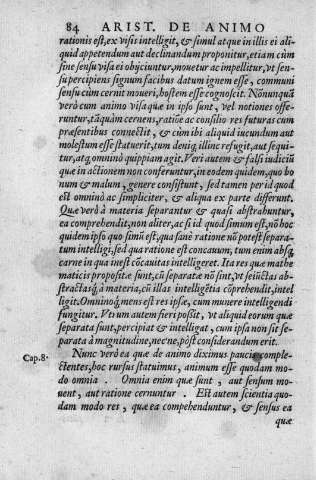 84 ARIST. DE ANIMO
rationis est, ex visis intelligit, & simul atque in illis ei ali-
quid appetendum aut declinandum proponitur, etiam cùm
sine sensu visa ei obijciuntur, mouetur ac impellitur, vt sen-
su percipiens signum facibus datum ignem esse, communi
sensu cùm cernit moueri, hostem esse cognoscit. Nõnunquã
verò cum animo visa quæ in ipso sunt, vel notiones offe-
runtur, tãquàm cernens, ratiõe ac consilio res futuras cum
præsentibus connectit, & cùm ibi aliquid iucundum aut
molestum esse statuerit, tum deniq; illinc refugit, aut sequi-
tur, atq; omninò quippiam agit. Veri autem & falsi iudiciũ
quæ in actionem non conferuntur, in eodem quidem, quo bo
num & malum, genere consistunt, sed tamen per id quod
est omninò ac simpliciter, & aliqua ex parte differunt.
Quæ verò à materia separantur & quasi abstrabuntur,
ea comprehendit, non aliter, ac si id quod simum est, nõ hoc
quidem ipso quo simũ est, qua sanè ratione nõ potest separa-
tum intelligi, sed qua ratione est concauum, tum enim absq;
carne in qua inest cõcauitas intelligeret. Ita res quæ mathe
maticis propositæ sunt, cũ separatæ nõ sint, vt seiũctas ab-
stractasq́; à materia, cũ illas intelligẽtia cõprehendit, intel
ligit. Omninoq́; mens est res ipsæ, cum munere intelligendi
fungitur. Vtrum autem fieri possit, vt aliquid eorum quæ
separata sunt, percipiat & intelligat, cum ipsa non sit se-
parata à magnitudine, nec ne, pòst considerandum erit.
Cap. 8. Nunc verò ea quæ de animo diximus paucis comple-
ctentes, hoc rursus statuimus, animum esse quodam mo-
do omnia. Omnia enim quæ sunt, aut sensum mo-
uent, aut ratione cernuntur. Est autem scientia quo-
dam modo res, quæ ea compehenduntur, & sensus ea
quæ